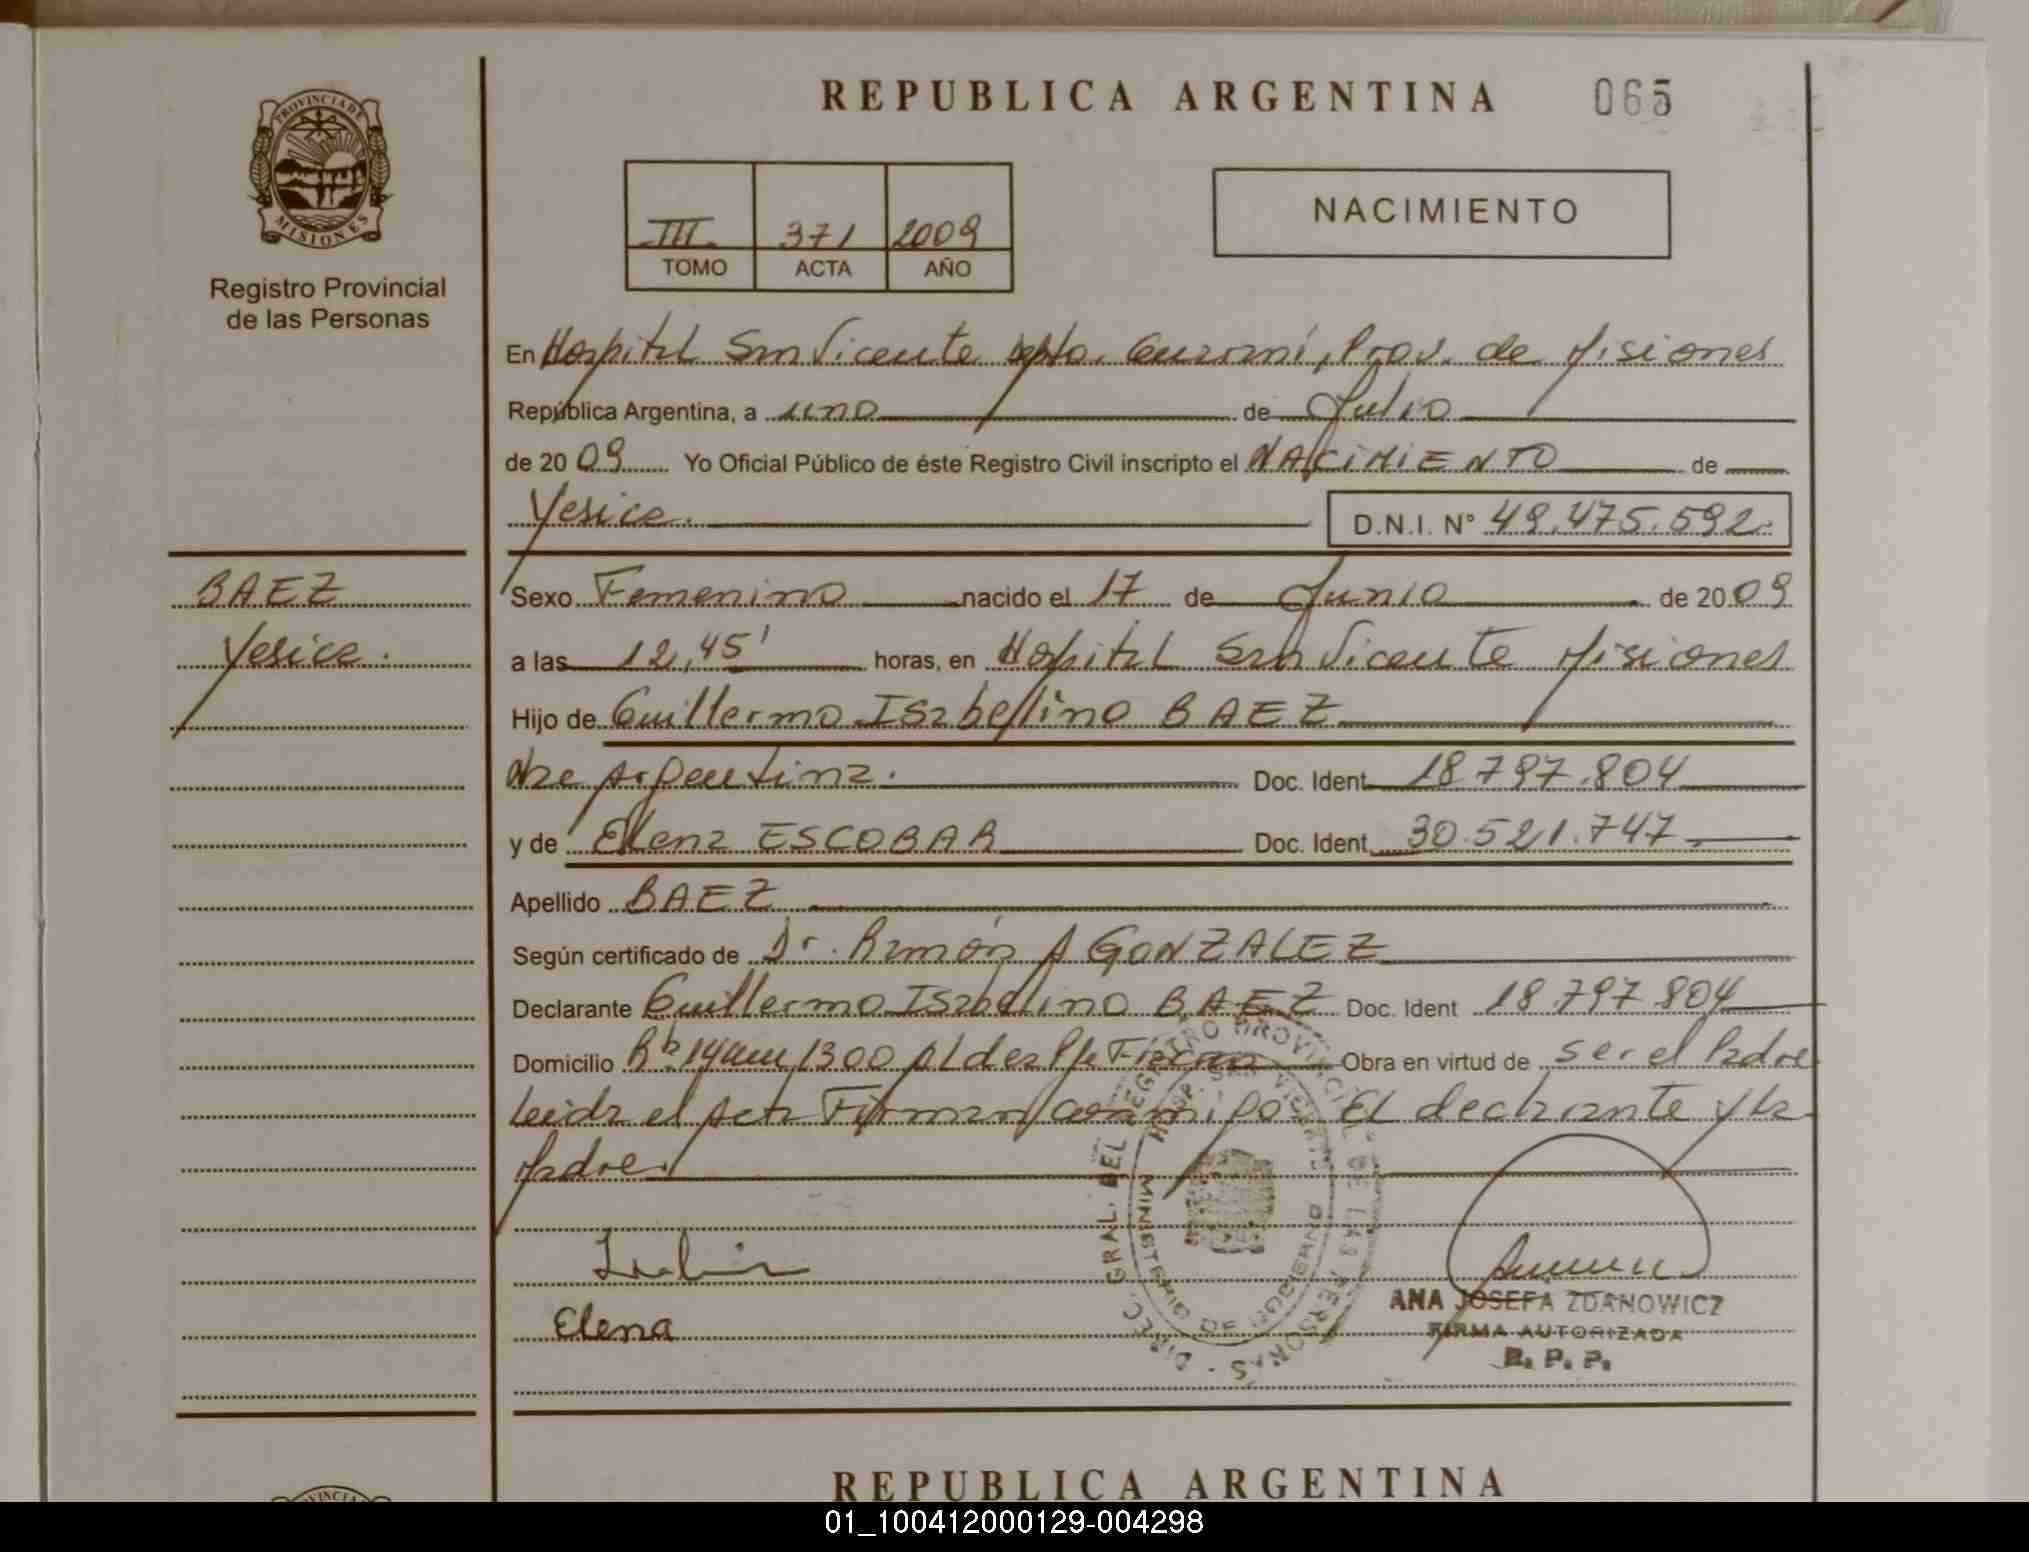 REPUBLICA ARGENTINA 065
PROVINCIA DE
MISIONES
Registro Provincial
de las Personas
III 371 2009
TOMO ACTA AÑO
NACIMIENTO
En Hospital San Vicente Dpto. Guaraní, Prov. de Misiones
República Argentina, a uno de Julio
de 2009 Yo Oficial Público de éste Registro Civil inscripto el NACIMIENTO de
Yesica. D.N.I. N° 49.475.592.
BAEZ
Yesica.
Sexo Femenino nacido el 17 de Junio de 2009
a las 12,45' horas, en Hospital San Vicente Misiones
Hijo de Guillermo Isabelino BAEZ
Nac Argentina. Doc. Ident. 18.797.804
y de Elena ESCOBAR Doc. Ident. 30.521.747
Apellido BAEZ
Según certificado de Dr. Ramón A GONZALEZ
Declarante Guillermo Isabelino BAEZ Doc. Ident 18.797.804
Domicilio 1300 Obra en virtud de ser el Padre
Leida el Acta Firman conmigo El declarante y la
Madre.
DIREC. GRAL. DEL REGISTRO PROVINCIAL DE LAS PERSONAS
HOSP. SAN VICENTE
MINISTERIO DE GOBIERNO
Elena
ANA JOSEFA ZDANOWICZ
FIRMA AUTORIZADA
R. P. P.
REPUBLICA ARGENTINA
01_100412000129-004298